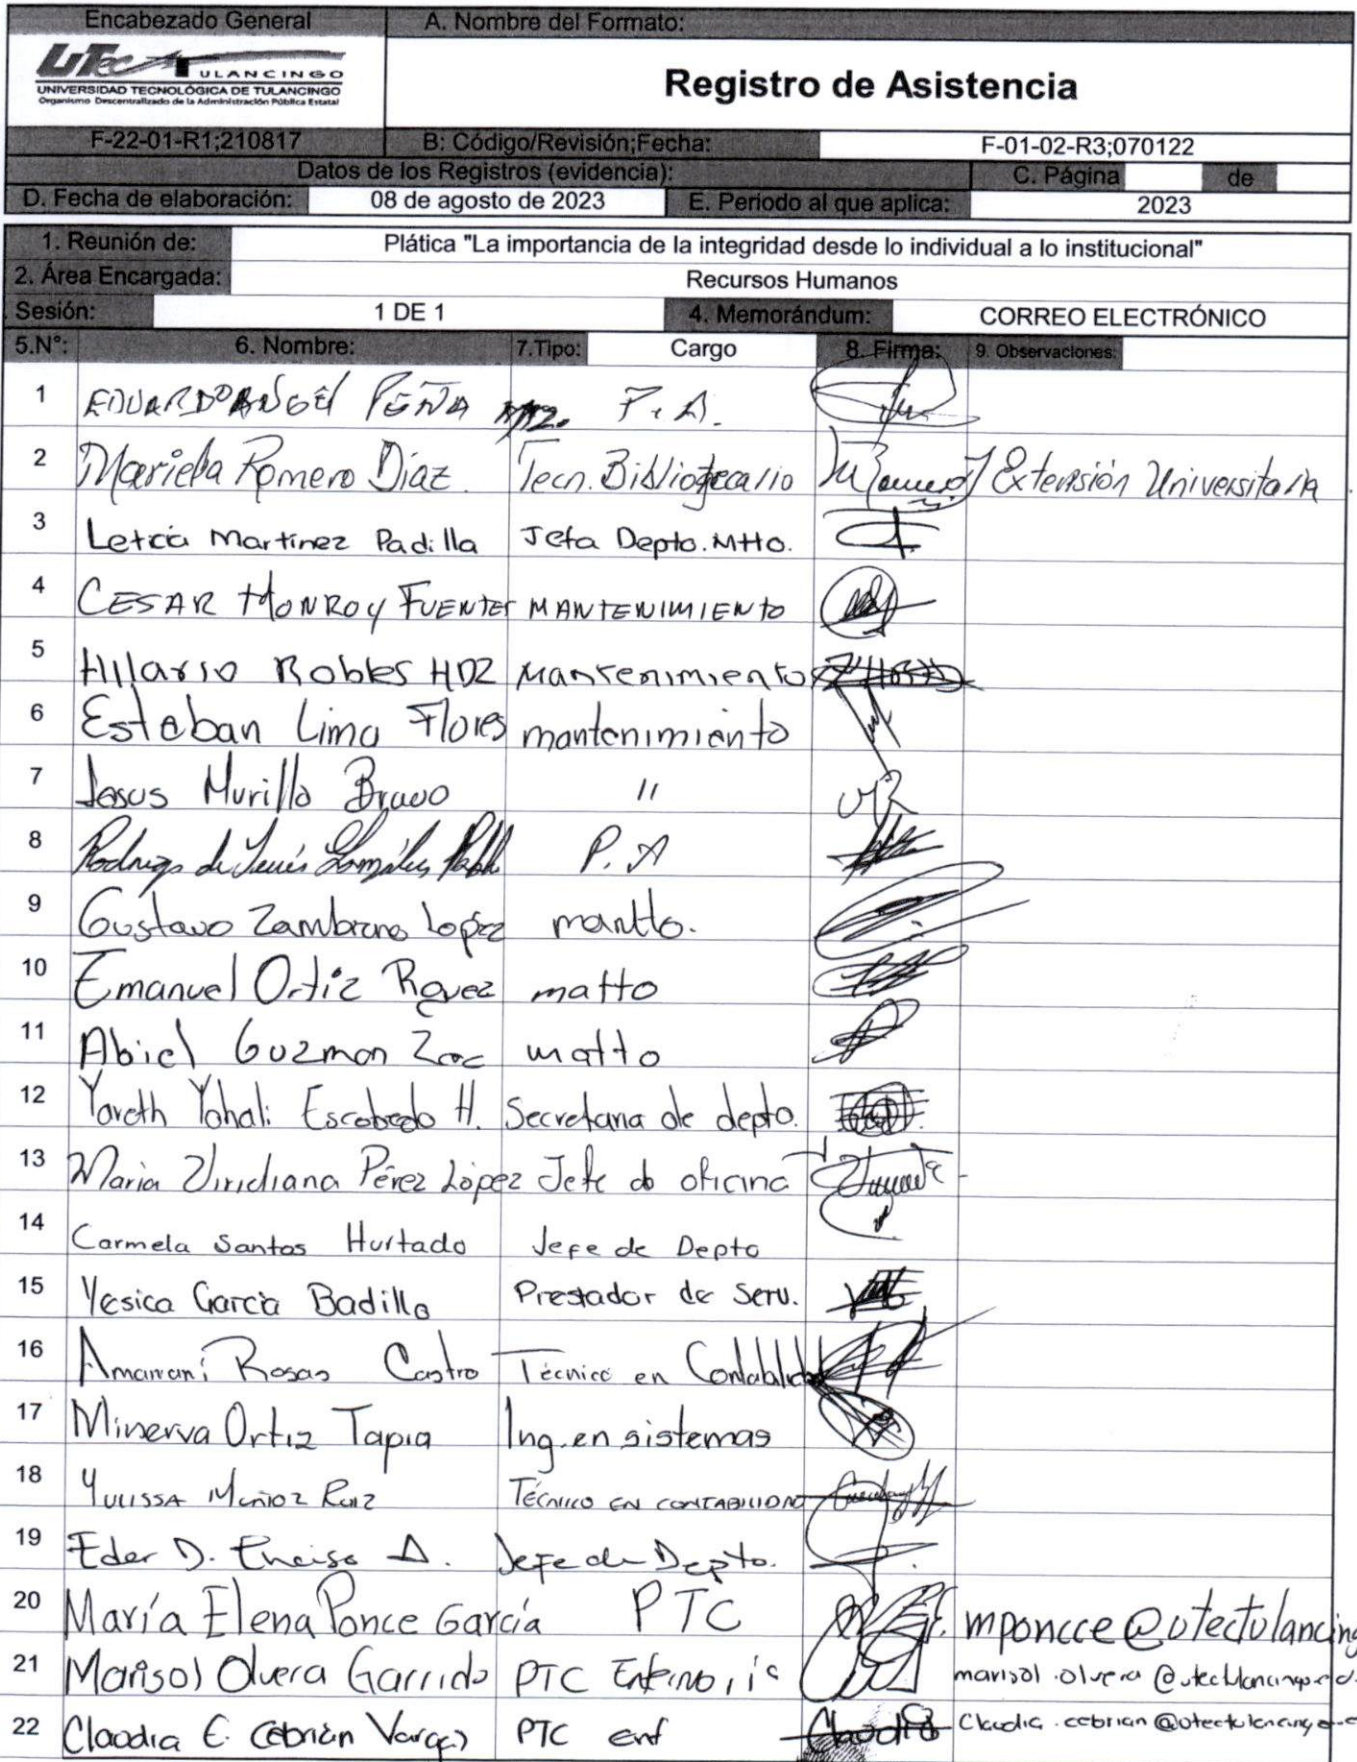 Encabezado General A. Nombre del Formato:
UTec TULANCINGO
UNIVERSIDAD TECNOLÓGICA DE TULANCINGO
Organismo Descentralizado de la Administración Pública Estatal
Registro de Asistencia
F-22-01-R1;210817 B: Código/Revisión;Fecha: F-01-02-R3;070122
Datos de los Registros (evidencia): C. Página de
D. Fecha de elaboración: 08 de agosto de 2023 E. Periodo al que aplica: 2023
1. Reunión de: Plática "La importancia de la integridad desde lo individual a lo institucional"
2. Área Encargada: Recursos Humanos
Sesión: 1 DE 1 4. Memorándum: CORREO ELECTRÓNICO
5.N°: 6. Nombre: 7.Tipo: Cargo 8. Firma: 9. Observaciones:
1 EDUARDO ANGEL PEÑA P.A.
2 Mariela Romero Diaz. Tecn. Bibliotecario Extensión Universitaria.
3 Leticia Martinez Padilla Jefa Depto. MTTO.
4 CESAR MONROY FUENTES MANTENIMIENTO
5 Hilario Robles HDZ Mantenimiento
6 Esteban Lima Flores mantenimiento
7 Jesus Murillo Bravo "
8 Rodrigo de Jesús González P.A
9 Gustavo Zambrano Lopez mantto.
10 Emanuel Ortiz matto
11 Abiel Guzman Zac matto
12 Yareth Yohali Escobedo H. Secretaria de depto.
13 Maria Viridiana Pérez López Jefe de oficina
14 Carmela Santos Hurtado Jefe de Depto
15 Yesica García Badillo Prestador de Serv.
16 Amairani Rosas Castro Técnico en Contabilidad
17 Minerva Ortiz Tapia Ing. en sistemas
18 YULISSA MUÑOZ RUIZ TÉCNICO EN CONTABILIDAD
19 Eder D. Enciso A. Jefe de Depto.
20 María Elena Ponce García PTC mponcce@utectulancing
21 Marisol Olvera Garrido PTC marisol.olvera@utectulancingo.ed
22 Claudia E. Cebrián Vargas PTC enf Claudia claudia.cebrian@utectulancingo.e